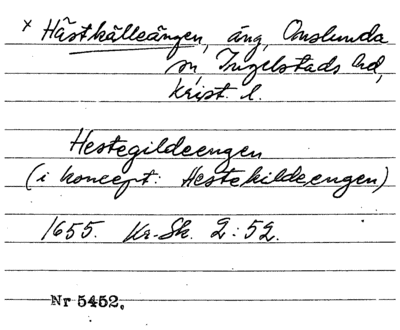 × Hästkälleängen, äng, Onslunda
sn, Ingelstads hd,
Krist. l.
Hestegildeengen
(i koncept: Hestekildeengen)
1655. Kr. Sk. 2:52.
Nr 5452.